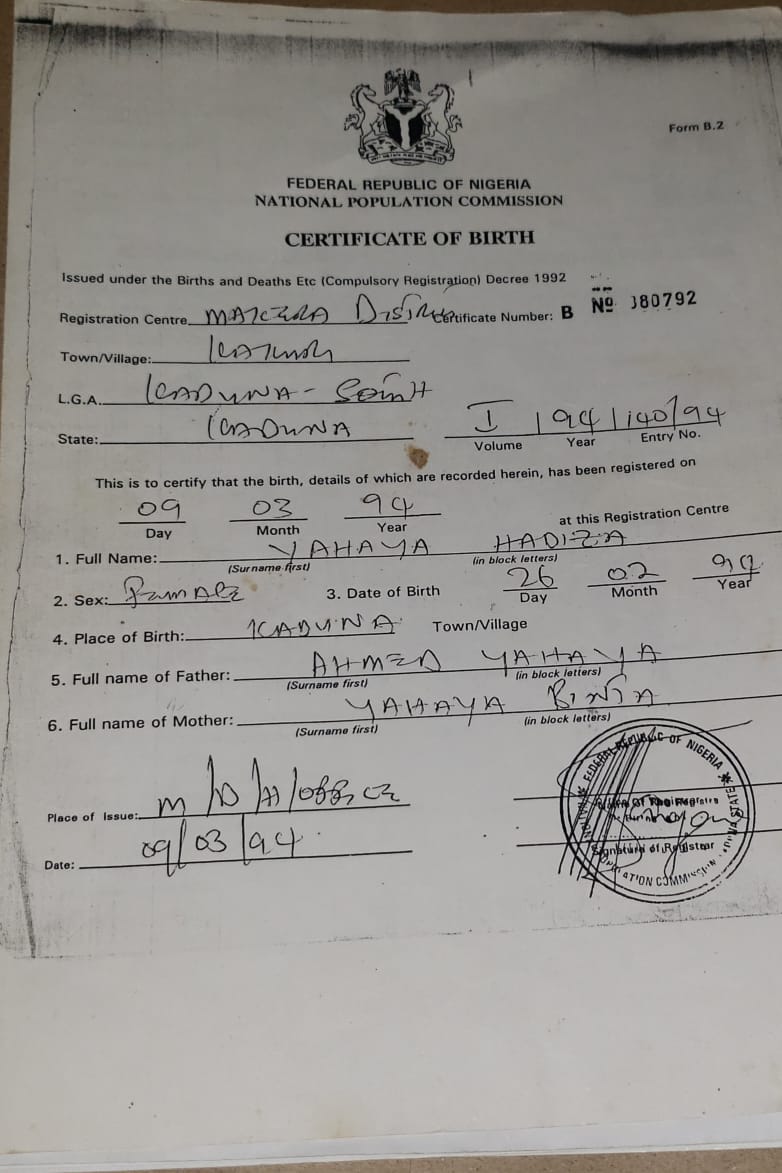 Form B.2
FEDERAL REPUBLIC OF NIGERIA
NATIONAL POPULATION COMMISSION
CERTIFICATE OF BIRTH
Issued under the Births and Deaths Etc (Compulsory Registration) Decree 1992
Registration Centre Certificate Number: B Nº 380792
Town/Village:
L.G.A. KADUNA - South
State: KADUNA I 94 140/94
Volume Year Entry No.
This is to certify that the birth, details of which are recorded herein, has been registered on
09 03 94
Day Month Year at this Registration Centre
1. Full Name: YAHAYA HADIZA
(Surname first) (in block letters)
2. Sex: Female 3. Date of Birth 26 02 94
Day Month Year
4. Place of Birth: KADUNA Town/Village
5. Full name of Father: AHMED YAHAYA
(Surname first) (in block letters)
6. Full name of Mother: YAHAYA
(Surname first) (in block letters)
Place of Issue: M/D/H/office
Date: 09/03/94
FEDERAL REPUBLIC OF NIGERIA
Signature of Registrar
COMMISSION
STATE